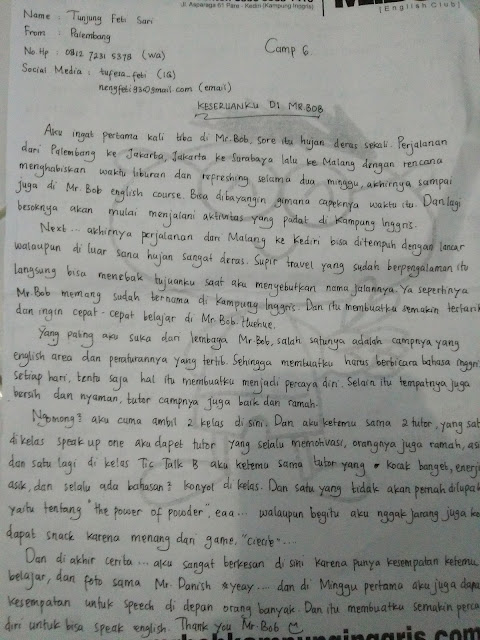 Jl. Asparaga 61 Pare - Kediri (Kampung Inggris)
[English Club]
Name : Tunjung Febi Sari
From : Palembang
No.Hp : 0812 7231 5378 (wa)
Social Media : tufesa_febi (IG)
nengfebi93@gmail.com (email)
Camp 6.
KESERUANKU DI MR.BOB
Aku ingat pertama kali tiba di Mr.Bob, sore itu hujan deras sekali. Perjalanan
dari Palembang ke Jakarta, Jakarta ke Surabaya lalu ke Malang dengan rencana
menghabiskan waktu liburan dan refreshing selama dua minggu, akhirnya sampai
juga di Mr. Bob english course. Bisa dibayangin gimana capeknya waktu itu. Dan lagi
besoknya akan mulai menjalani aktivitas yang padat di Kampung Inggris.
Next... akhirnya perjalanan dari Malang ke Kediri bisa ditempuh dengan lancar
walaupun di luar sana hujan sangat deras. Supir travel yang sudah berpengalaman itu
langsung bisa menebak tujuanku saat aku menyebutkan nama jalannya. Ya sepertinya
Mr.Bob memang sudah ternama di Kampung Inggris. Dan itu membuatku semakin tertarik
dan ingin cepat-cepat belajar di Mr.Bob. Huehue.
Yang paling aku suka dari lembaga Mr.Bob, salah satunya adalah campnya yang
english area dan peraturannya yang tertib. Sehingga membuatku harus berbicara bahasa inggris
setiap hari, tentu saja hal itu membuatku menjadi percaya diri. Selain itu tempatnya juga
bersih dan nyaman, tutor campnya juga baik dan ramah.
Ngomong² aku cuma ambil 2 kelas di sini. Dan aku ketemu sama 2 tutor, yang sat
di kelas speak up one aku dapet tutor yang selalu memotivasi, orangnya juga ramah, asi
dan satu lagi di kelas Tic Talk B aku ketemu sama tutor yang kocak banget, energi
asik, dan selalu ada bahasan² konyol di kelas. Dan satu yang tidak akan pernah dilupak
yaitu tentang "the power of powder", eaa... walaupun begitu aku nggak jarang juga ko
dapat snack karena menang dari game, "ciecie"....
Dan di akhir cerita... aku sangat berkesan di sini karena punya kesempatan ketemu,
belajar, dan foto sama Mr. Danish *yeay.... dan di Minggu pertama aku juga dapa
kesempatan untuk speech di depan orang banyak. Dan itu membuatku semakin perca
diri untuk bisa speak english. Thank you Mr.Bob
kampunginggris.com